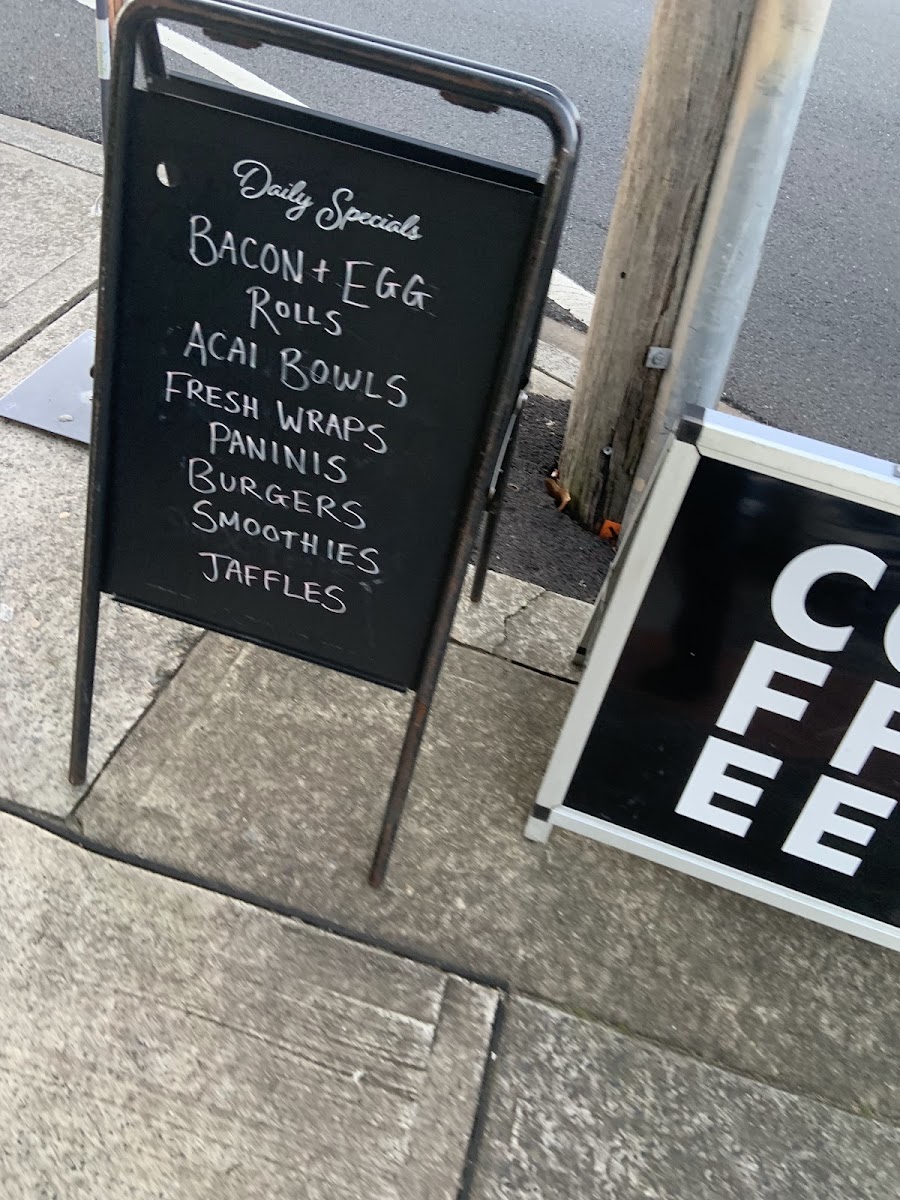 Daily Specials
BACON + EGG
ROLLS
ACAI BOWLS
FRESH WRAPS
PANINIS
BURGERS
SMOOTHIES
JAFFLES
CO
FF
EE